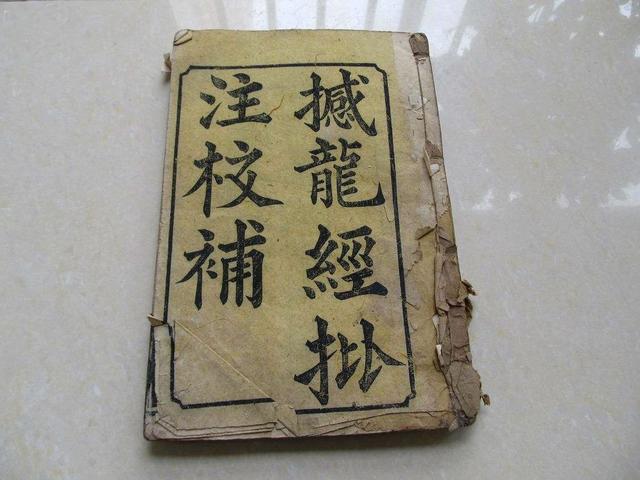 撼龍經批
注校補